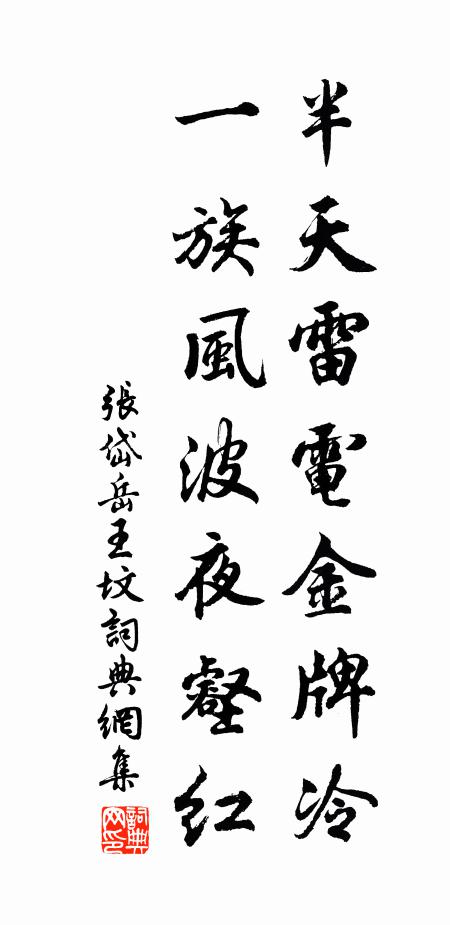 半天雷電金牌冷
一族風波夜壑红
張岱岳王坟詞典網集
詞典网印